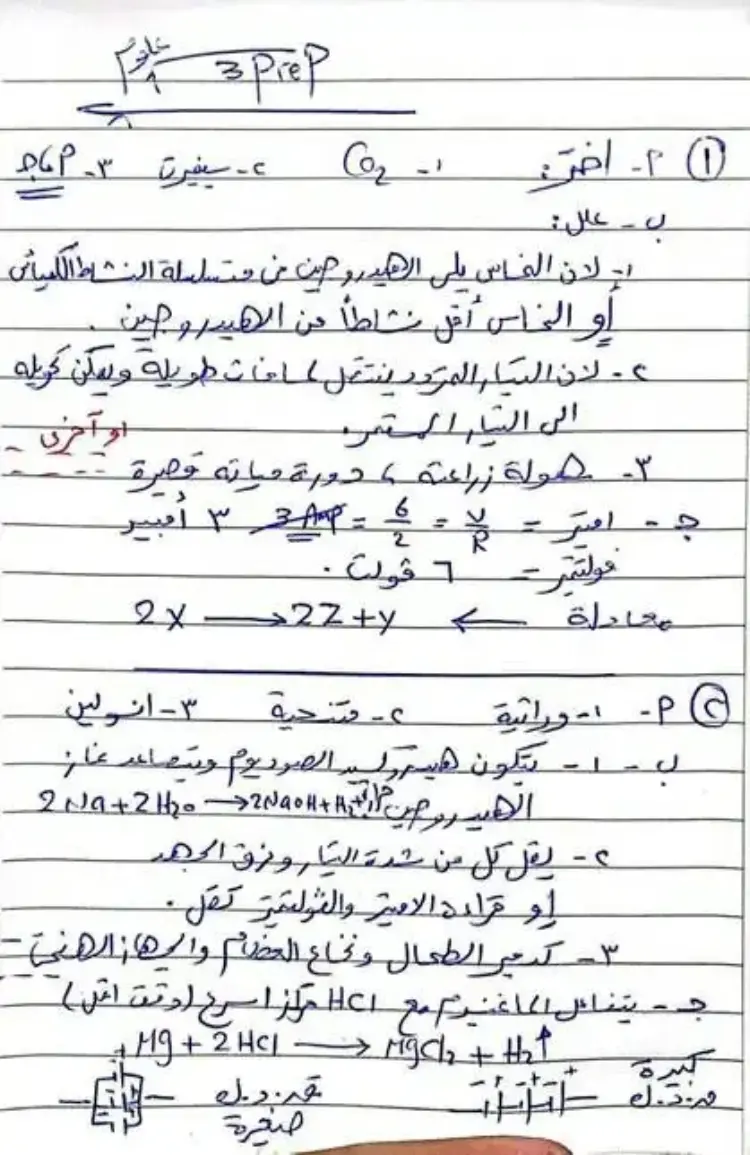 علوم 3 Prep
① P- اختر: ١- CO2 ٢- سيفرت ٣- P،ج
ب - علل:
١- لان النحاس يلى الهيدروجين فى متسلسلة النشاط الكيميائى
أو النحاس أقل نشاطاً من الهيدروجين .
٢- لان التيار المتردد ينتقل لمسافات طويلة ويمكن تحويله
الى التيار المستمر.
او آخرى
٣- سهولة زراعته ، دورة حياته قصيرة
جـ - اميتر = V/R = 6/2 = 3 Amp ٣ أمبير
فولتميتر = ٦ ڤولت .
معادلة ← 2X ⟶ 2Z + y
② P- ١- وراثية ٢- متنحية ٣- انسولين
ب - ١- يتكون هيدروكسيد الصوديوم ويتصاعد غاز
الهيدروجين 2Na + 2H2O ⟶ 2NaOH + H2↑ + حرارة
٢- يقل كل من شدة التيار وفرق الجهد
أو قراءة الاميتر والڤولتميتر تقل .
٣- تدمير الطحال ونخاع العظام والجهاز الهضمى
جـ - يتفاعل الماغنسيوم مع HCl مركز اسرع (وقت اقل)
Mg + 2HCl ⟶ MgCl2 + H2↑
كبيرة
ق.د.ك
ق.د.ك
صغيرة